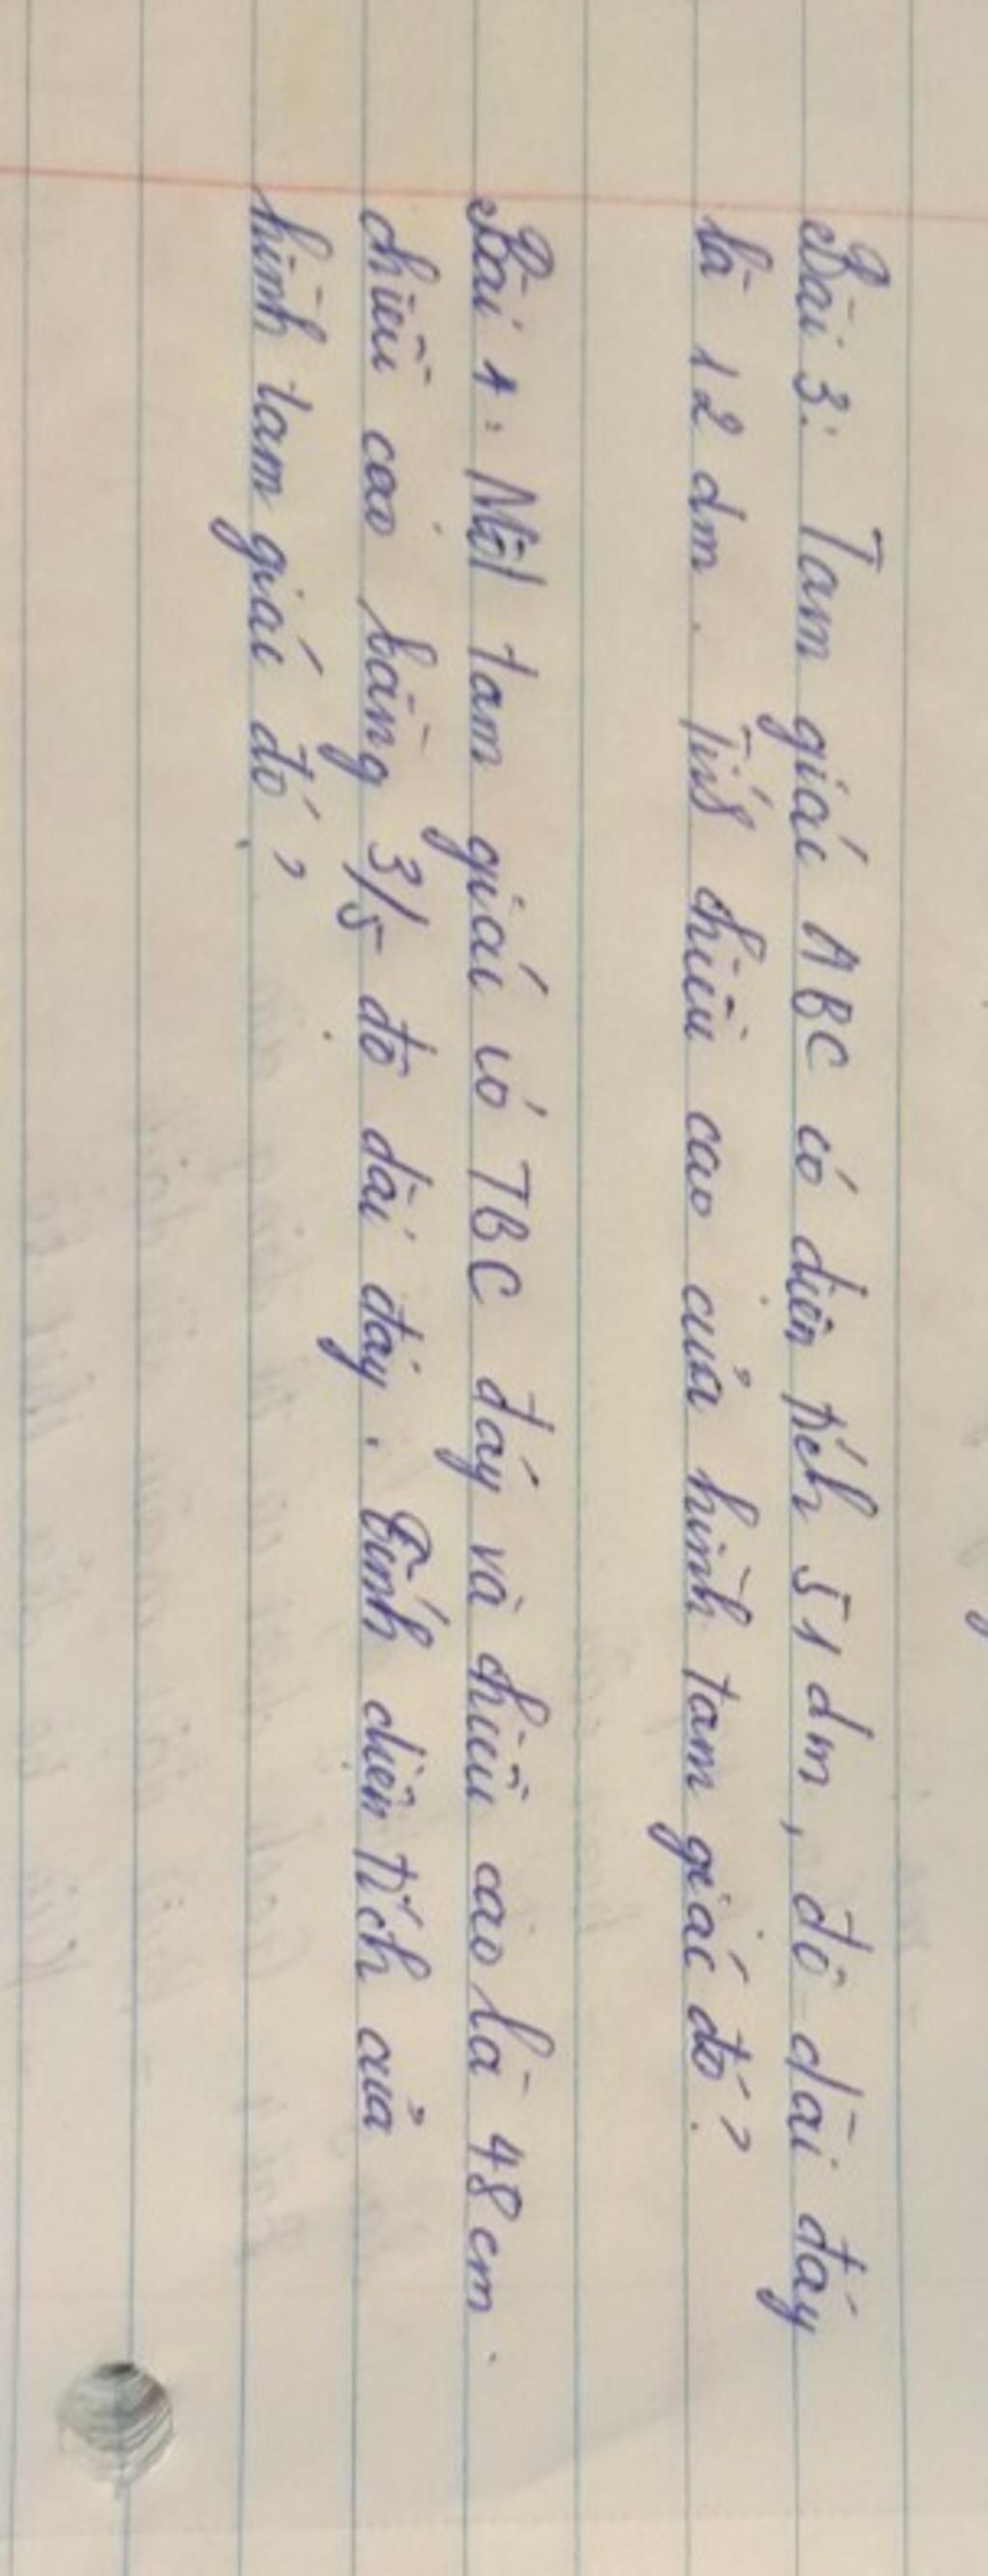 Bài 3: Tam giác ABC có diện tích 51 dm, độ dài đáy
là 12 dm. Tính chiều cao của hình tam giác đó?
Bài 1: Một tam giác có TBC đáy và chiều cao là 48 cm.
chiều cao bằng 3/5 độ dài đáy. Tính diện tích của
hình tam giác đó?